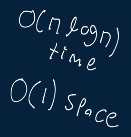 O(n log n)
time
O(1) space